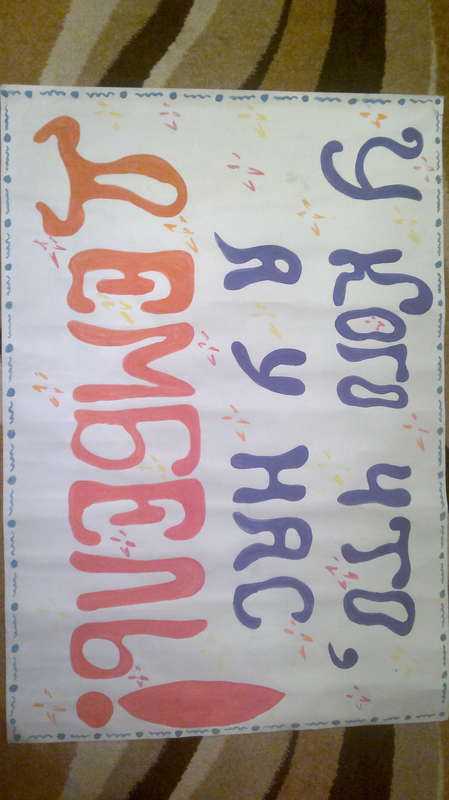 У КОГО ЧТО,
А У НАС
ДЕМБЕЛЬ!